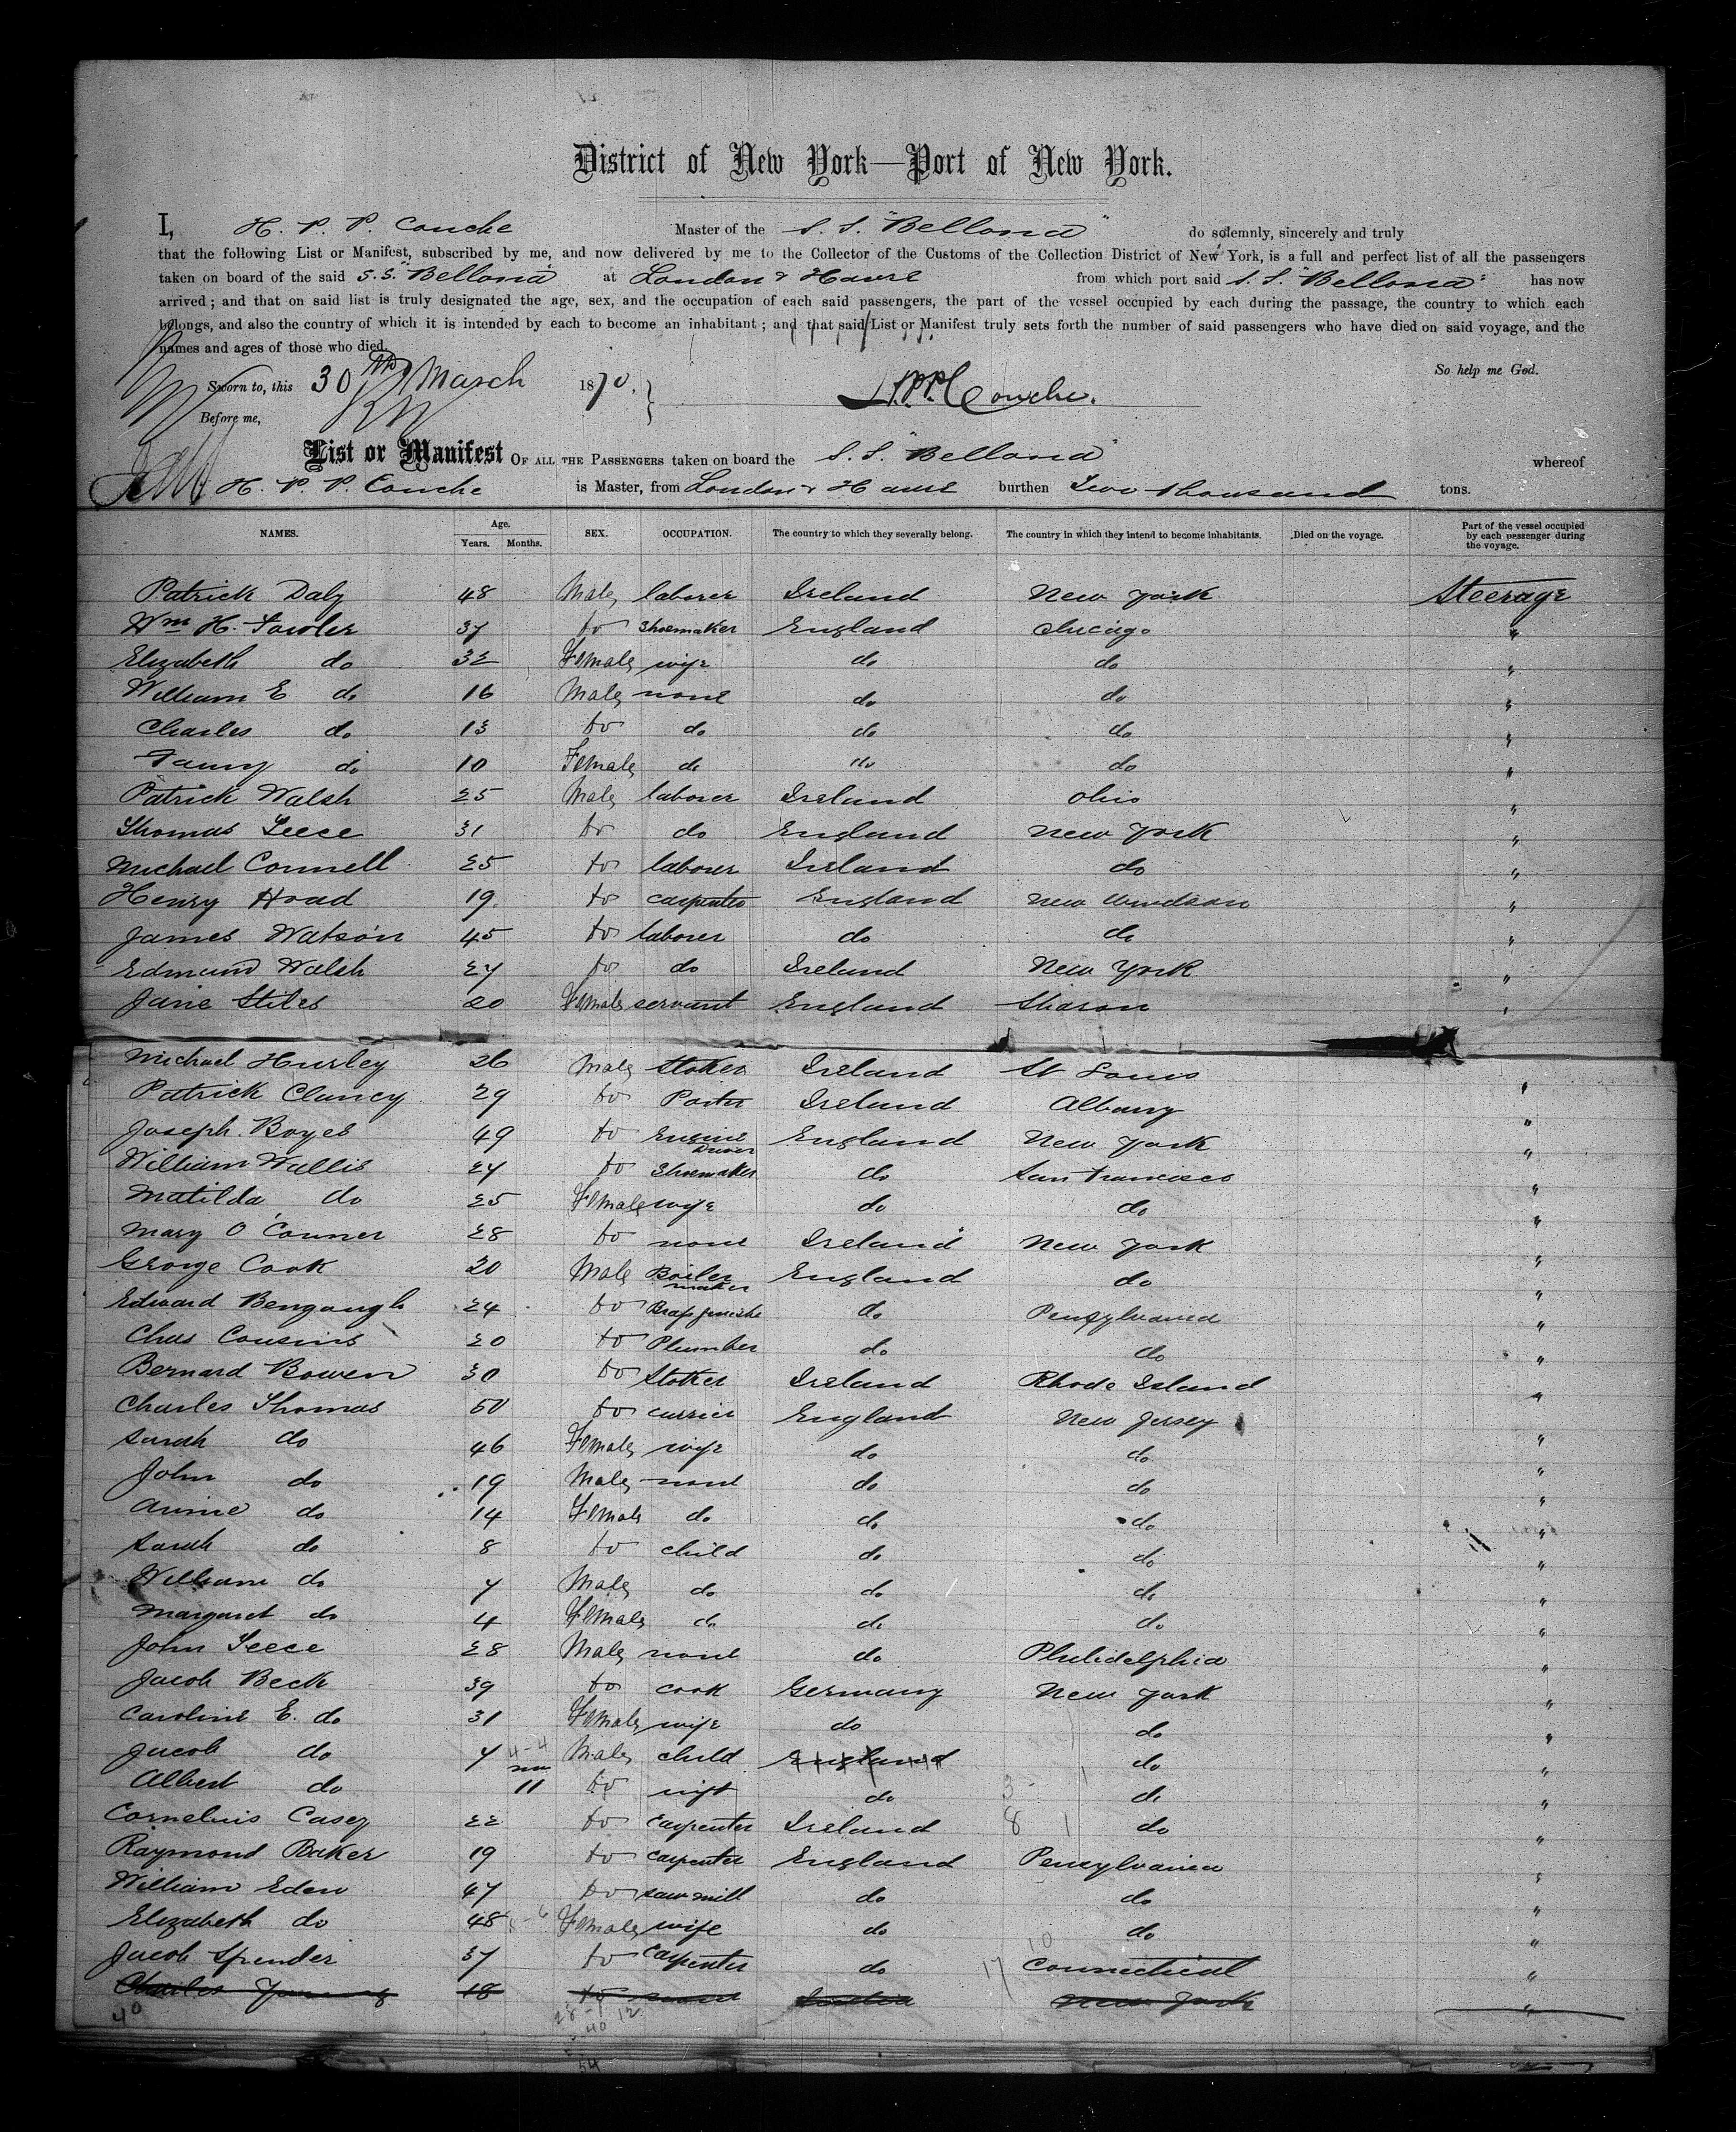 District of New York—Port of New York.
I, H. P. P. Couche Master of the S. S. "Bellona" do solemnly, sincerely and truly
that the following List or Manifest, subscribed by me, and now delivered by me to the Collector of the Customs of the Collection District of New York, is a full and perfect list of all the passengers
taken on board of the said S.S. "Bellona" at London & Havre from which port said S. S. "Bellona" has now
arrived; and that on said list is truly designated the age, sex, and the occupation of each said passengers, the part of the vessel occupied by each during the passage, the country to which each
belongs, and also the country of which it is intended by each to become an inhabitant; and that said List or Manifest truly sets forth the number of said passengers who have died on said voyage, and the
names and ages of those who died.
So help me God.
Sworn to, this 30th March 1870. H.P.P. Couche.
Before me,
List or Manifest OF ALL THE PASSENGERS taken on board the S. S. "Bellona" whereof
H. P. P. Couche is Master, from London & Havre burthen Two thousand tons.
NAMES. Age. Years. Months. SEX. OCCUPATION. The country to which they severally belong. The country in which they intend to become inhabitants. Died on the voyage. Part of the vessel occupied by each passenger during the voyage.
Patrick Daly 48 Male laborer Ireland New York Steerage
Wm H. Fowler 37 do Shoemaker England Chicago "
Elizabeth do 32 Female wife do do "
William E do 16 Male none do do "
Charles do 13 do do do do "
Fanny do 10 Female do do do "
Patrick Walsh 25 Male laborer Ireland Ohio "
Thomas Leece 31 do do England New York "
Michael Connell 25 do laborer Ireland do "
Henry Hoad 19 do carpenter England New "
James Watson 45 do laborer do do "
Edmund Walsh 27 do do Ireland New York "
Jane Stiles 20 Female servant England Sharon "
Michael Hurley 26 Male Stoker Ireland St Louis "
Patrick Clancy 29 do Porter Ireland Albany "
Joseph Boyes 49 do Engine Driver England New York "
William Wallis 27 do Shoemaker do San Francisco "
Matilda do 25 Female wife do do "
Mary O'Conner 28 do none Ireland New York "
George Cook 20 Male Boiler maker England do "
Edward Bengough 24 do Brass finisher do Pensylvania "
Chas Cousins 20 do Plumber do do "
Bernard Bowen 30 do Stoker Ireland Rhode Island "
Charles Thomas 50 do currier England New Jersey "
Sarah do 46 Female wife do do "
John do 19 Male none do do "
Annie do 14 Female do do do "
Sarah do 8 do child do do "
William do 7 Male do do do "
Margaret do 4 Female do do do "
John Leece 28 Male none do Philidelphia "
Jacob Beck 39 do cook Germany New York "
Caroline E. do 31 Female wife do do "
Jacob do 7 4-4 Male child England do "
Albert do 11 do inft do 3 do "
Cornelius Casey 22 do Carpenter Ireland 8 1 do "
Raymond Baker 19 do Carpenter England Pensylvania "
William Eden 47 do saw mill do do "
Elizabeth do 48 Female wife do do "
10
Jacob Spender 37 do Carpenter do 17 Connecticut "
Charles Young 18 do none New York "
40
28-7 12
40
54